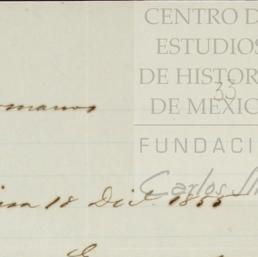 CENTRO D
ESTUDIOS
DE HISTOR
33
DE MEXIC
rmanos
FUNDACI
Carlos Sl
18 Dic. 1855